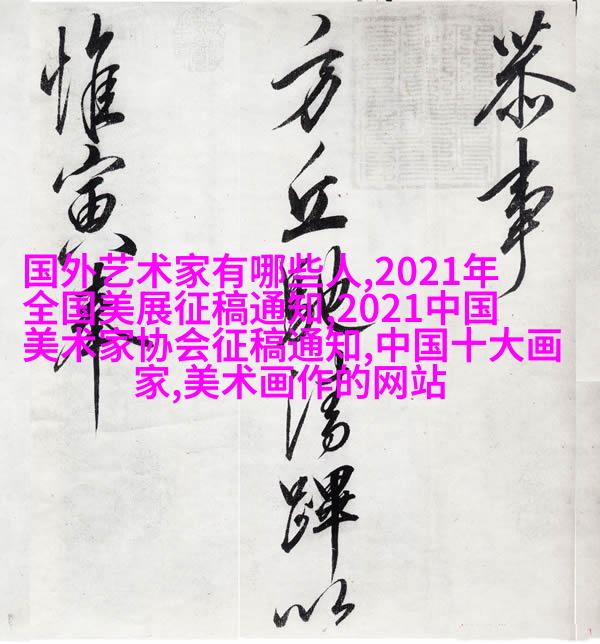 恭事
方丘馳清蹕以
惟寅奉
国外艺术家有哪些人,2021年
全国美展征稿通知,2021中国
美术家协会征稿通知,中国十大画
家,美术画作的网站